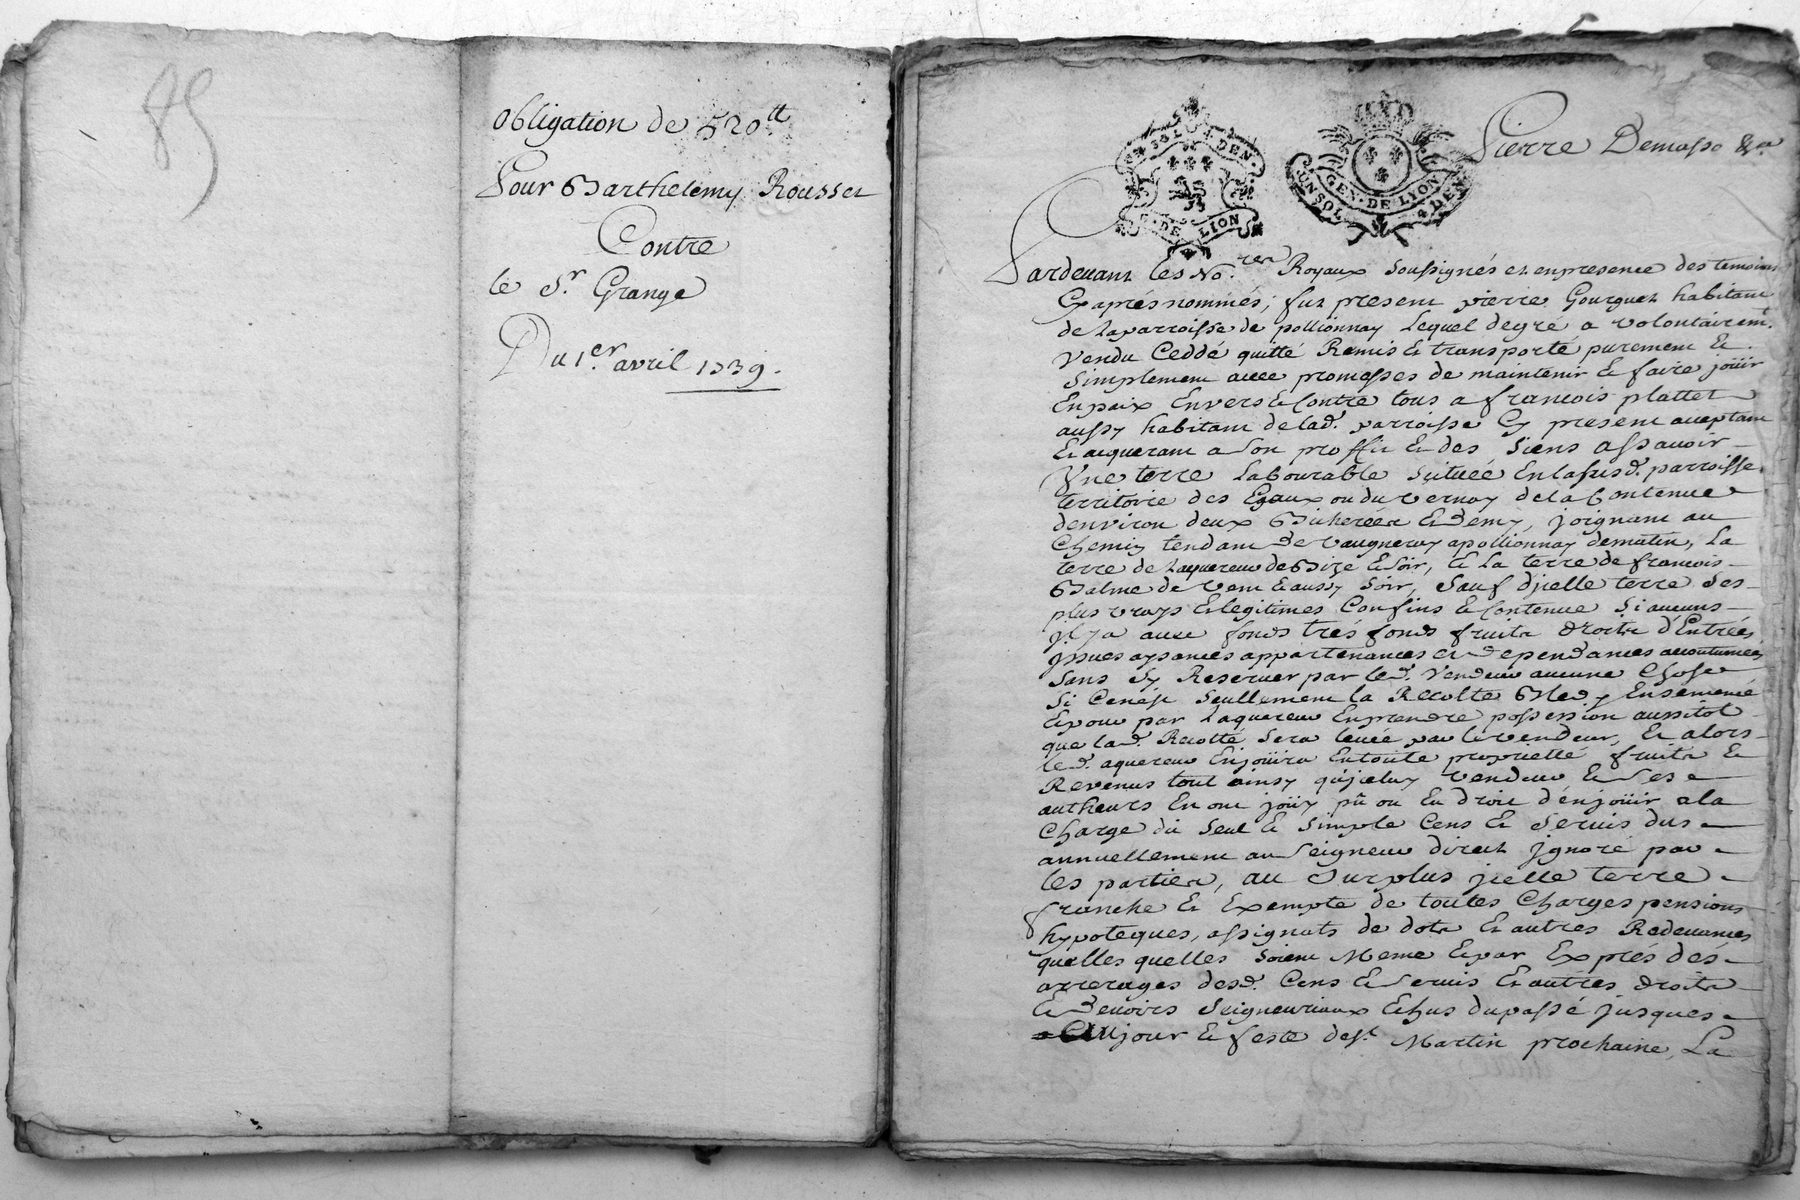 85
Obligation de 520tt
Pour Barthelemy Rousset
Contre
le Sr. Grange
Du 1er. avril 1739.
GEN. DE LYON
UN SOL 4 DEN.
4 DEN.
DE LION
Pierre Demasso
Pardevant les No.res Royaux soussignés et en presence des temoins
Cy aprés nommés, fut present pierre Gourguet habitant
de la parroisse de pollionnay lequel de gré a volontairemt.
Vendu Ceddé quitté Remis et transporté purement et
Simplement avec promesses de maintenir et faire joüir
En paix Envers et Contre tous a francois plattet
aussy habitant de lad. parroisse Cy present acceptant
et aquerant a Son proffit et des Siens assavoir
Une terre Labourable Scituée En la susd. parroisse
territoire des Egaux ou du vernay de la Contenue
denviron deux Bicherées et demy, joignant au
Chemin tendant de vaugneray a pollionnay de matin, La
terre de Laquereur de Bize et Soir, et La terre de francois
Balme de vent et aussy Soir, Sauf d'jcelle terre Ses
plus vrays et legitimes Confins et Contenue Si aucuns
jl y a avec fonds trés fonds fruits droits d'Entrées
jssues aysances appartenances et dependances accoutumées
Sans Sy Reserver par led. Vendeur aucune Chose
Si Cenest Seullement la Recolte Bled y Ensemencé
Et pour par Laquereur En prendre possession aussitot
que lad. Recolté Sera levée par le vendeur, Et alors
led. aquereur En joüira En toute proprietté fruits et
Revenus tout ainsy qu'jceluy vendeur et Ses
autheurs En ont joüy pû ou Eu droit d'en joüir a la
Charge du Seul et Simple Cens et Servis dus
annuellement au Seigneur direct jgnoré par
les parties, au Surplus jcelle terre
franche et Exempte de toutes Charges pensions
hypoteques, assignats de dots et autres Redevances
quelles quelles Soient Meme et par Exprés dés
arrerages desd. Cens et Servis et autres droits
et devoirs Seigneuriaux Echus du passé jusques
au jour et feste de St. Martin prochaine, La